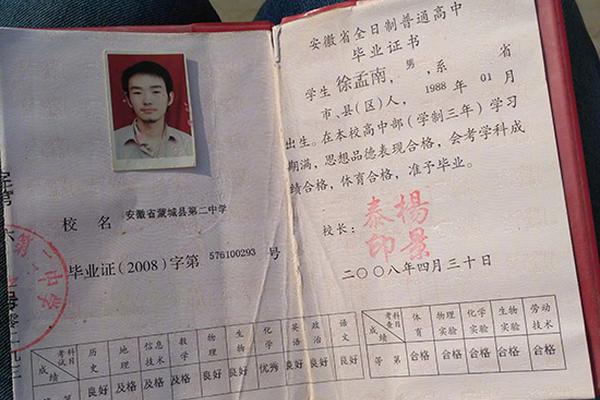 校 名 安徽省蒙城县第二中学
毕业证(2008)字第 576100293 号
考试科目 历史 地理 信息技术 数学 物理 生物 化学 英语 政治 语文
成绩 良好 及格 及格 及格 良好 良好 优秀 良好 良好 良好
等 第
安徽省全日制普通高中
毕业证书
学生 徐孟南,男,系 省
市、县(区)人, 1988 年 01 月
出生。在本校高中部(学制三年)学习
期满,思想品德表现合格,会考学科成
绩合格,体育合格,准予毕业。
校长: 杨景泰印
二〇〇八年四月三十日
考查科目 体育 物理实验 化学实验 生物实验 劳动技术
成绩 等 第 合格 合格 合格 合格 合格
第二中学